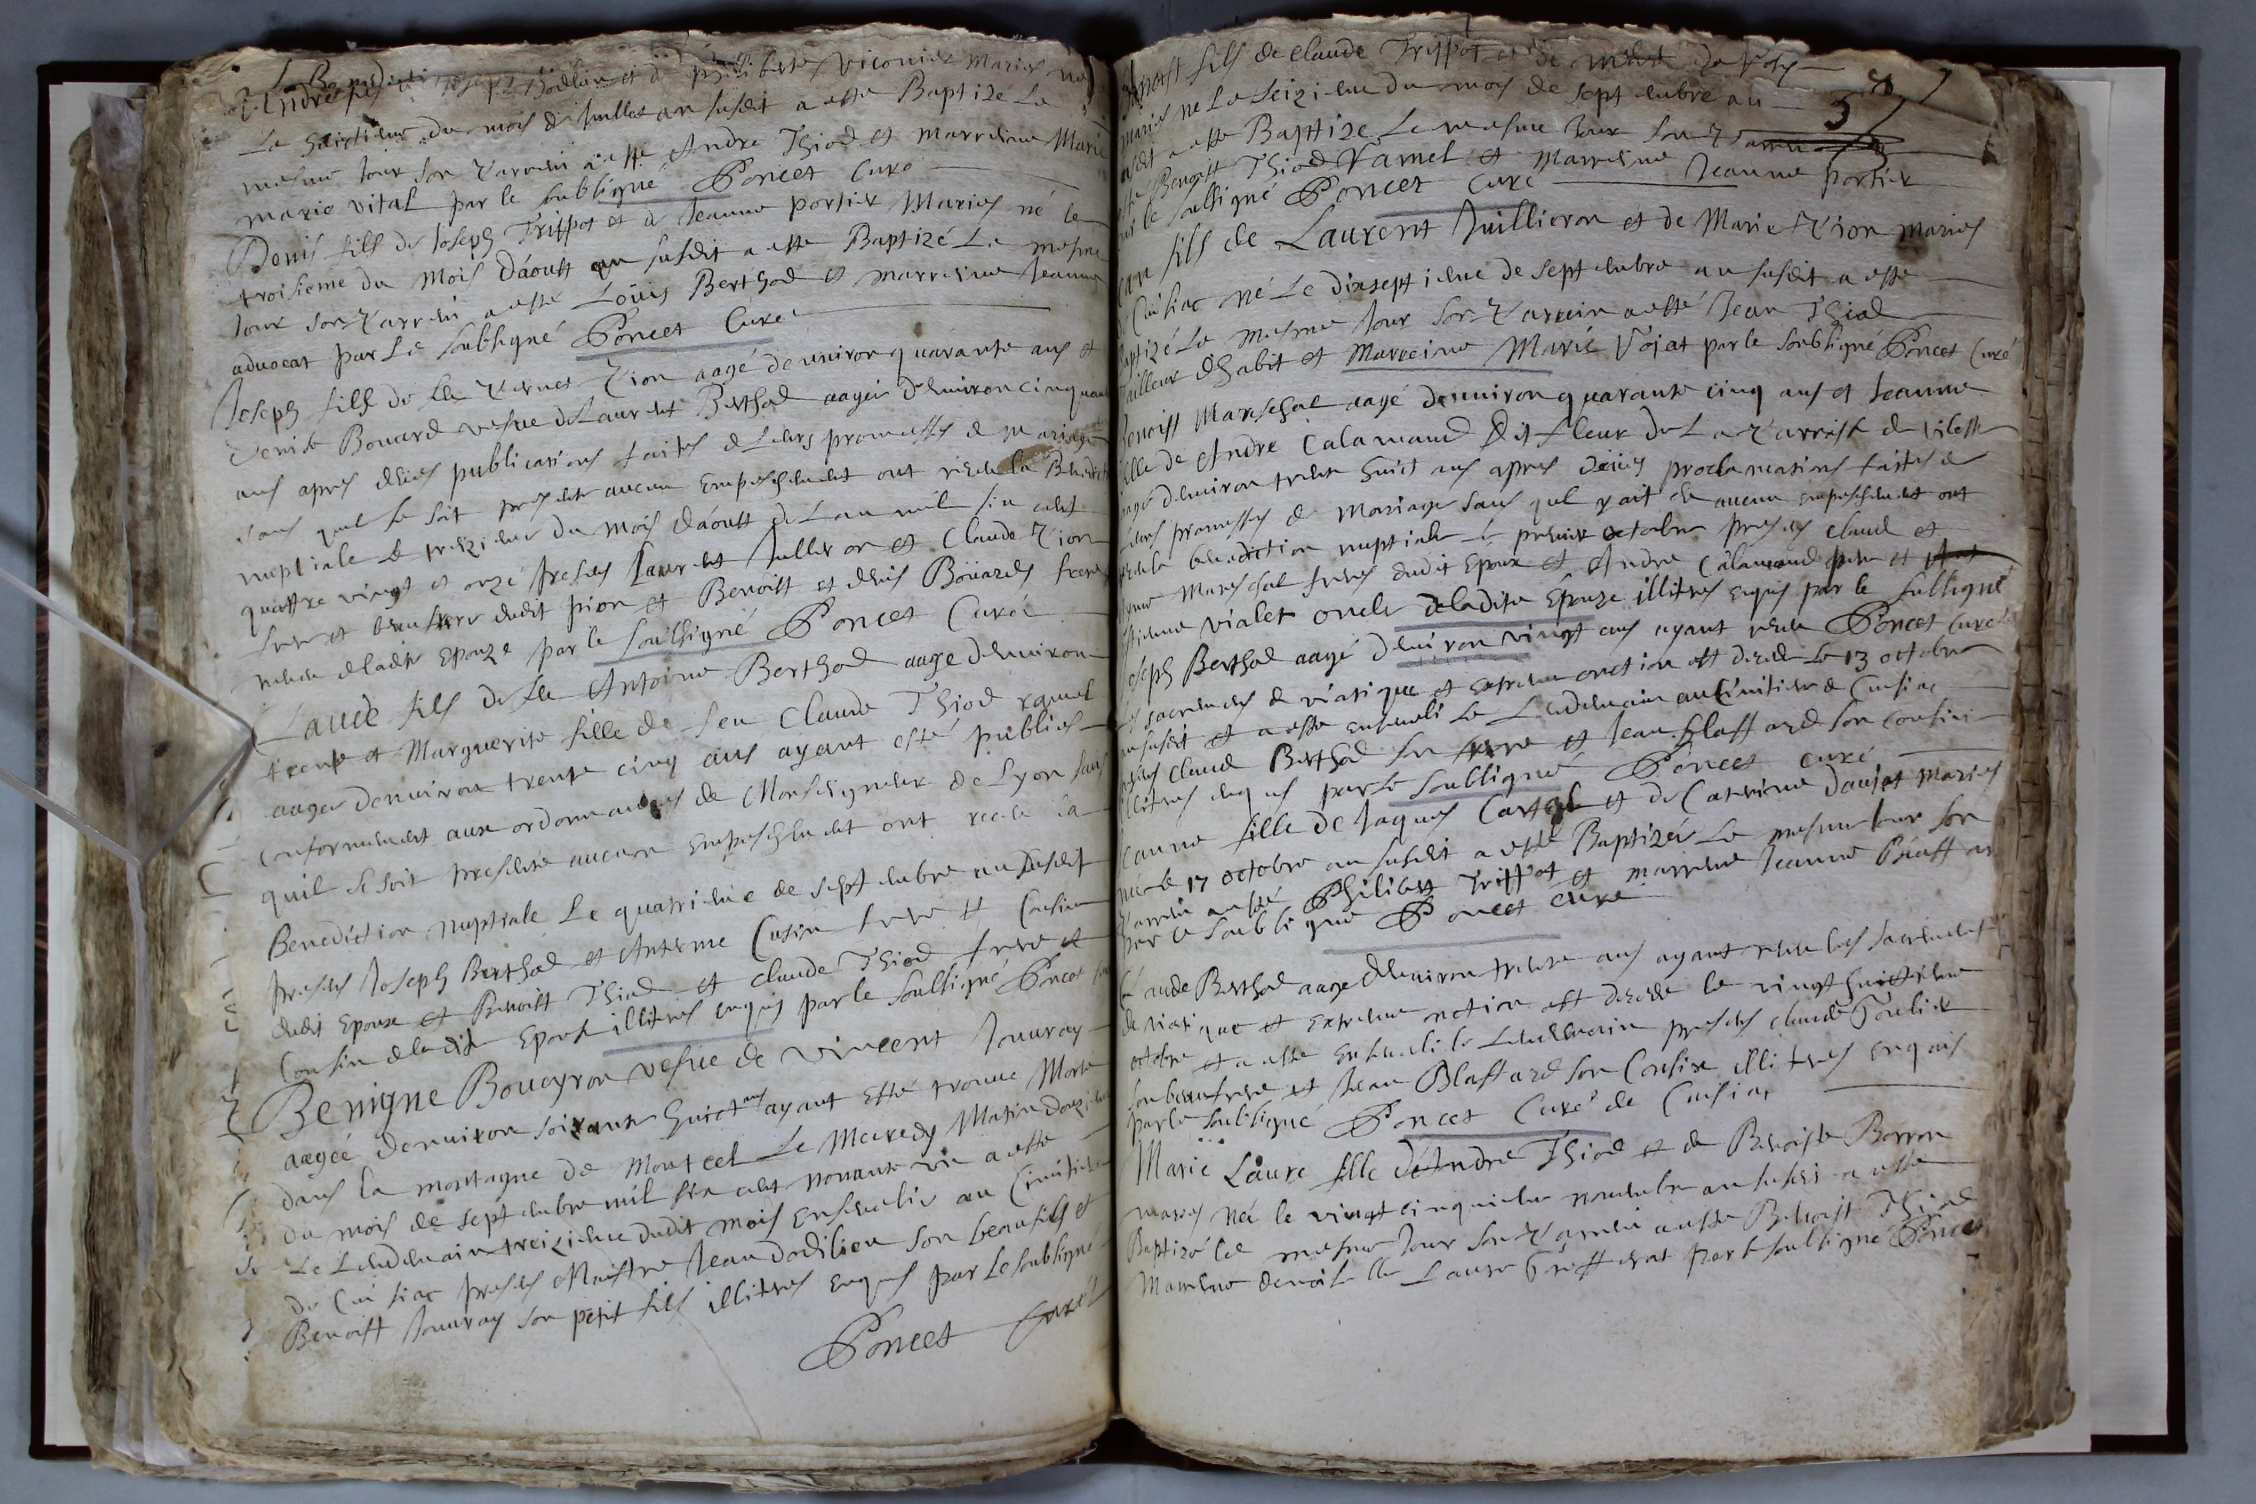 André fils de Joseph et de philiberte viconier Mariés né
Le huictieme du mois de Juillet an susdit a esté Baptizé Le
mesme Jour son parrein a esté Andre Thiod et marreine Marie
marie vital par le soubsigné Poncet Curé
Denis fils de Joseph Trippot et de Jeanne portier Mariés né le
troisieme du Mois d'aoust an susdit a esté Baptizé Le mesme
Jour son parrein a esté Loüis Berthod et marreine Jeanne
advocat par Le soubsigné Poncet Curé
Joseph fils de feu pion aagé denviron quarante ans et
Denise Bouard vefve de Laurent Berthod aagée d'environ cinquante
ans apres deües publications faites de Leurs promesses de mariage
sans quil se soit presenté aucun empeschement ont receu la Benediction
nuptiale le treizieme du mois d'aoust de L an mil six cent
quattre vingt et onze presents Laurent Julleron et Claude pion
frere et beaufrere dudit pion et Benoist et denis Boüards freres
de ladite epouze par le soubsigné Poncet Curé
Claude fils de feu Antoine Berthod aagé denviron
trente et Marguerite fille de feu Claude Thiod
aagée denviron trente cinq ans ayant esté publiés
conformement aux ordonnances de Monseigneur de Lyon sans
quil se soit presenté aucun empeschement ont receu la
Benediction nuptiale Le quatrieme de septembre an susdit
presents Joseph Berthod et Anterme Cusin frere et Cousin
dudit Epoux et Benoist Thiod et Claude Thiod frere et
Cousin de ladite Epouse illitres enquis par le soubsigné Poncet
Benigne Boueyron vefve de Vincent Jouvray
aagée denviron soixante huict ans ayant esté trouvé Morte
dans la montagne de Montcel Le Mecredy Matin douzieme
du mois de septembre mil six cent nonante un a esté
Le Lendemain treizieme dudit mois ensevelie au Cimitiere
de Cuisiac presents Maistre Jean dodilieu son beaufils et
Benoist Jouvray son petit fils illitres enquis par Le soubsigné
Poncet Curé
Benoist fils de Claude Trippot et de
mariés né Le seizieme du mois de septembre an
susdit a esté Baptize Le mesme Jour son parrein
esté Benoist Thiod et Marreine Jeanne portier
par le soubsigné Poncet Curé
Jean fils de Laurent Juillieron et de Marie pion mariés
de Cuisiac né Le dixseptieme de septembre an susdit a esté
Baptizé Le mesme Jour son parrein a esté Jean Thiod
tailleur d'habit et Marreine Marie Vojat par le soubsigné Poncet Curé
Benoist Mareschal aagé denviron quarante cinq ans et Jeanne
fille de Andre Calamand dit fleur de La parroisse de
aagé denviron trente huict ans apres deües proclamations faites de
leurs promesses de Mariage sans quil y ait eu aucun empeschement ont
receu la benediction nuptiale le premier octobre presents Claude et
Mareschal freres dudit Epoux et Andre Calamand pere et
Estienne Vialet oncle de ladite Epouze illitres enquis par le soubsigné
Poncet Curé
Joseph Berthod aagé denviron vingt ans ayant receu
les sacrements de viatique et extreme onction est decedé le 13 octobre
an susdit et a esté enseveli le Lendemain au Cimitiere de Cuisiac
presents Claude Berthod son frere et Jean Blaffard son cousin
illitres enquis par le soubsigné Poncet curé
Jeanne fille de Jaques et de Caterine daujat mariés
née le 17 octobre an susdit a esté Baptizée Le mesme Jour son
parrein a esté Philibert Trippot et marreine Jeanne
par le soubsigné Poncet Curé
Claude Berthod aagé denviron trente ans ayant receu les sacrements
de viatique et Extreme onction est decedé le vingt huictieme
octobre et a esté Enseveli le Lendemain presents Claude
son beaufrere et Jean Blaffard son Cousin illitres enquis
par le soubsigné Poncet Curé de Cuisiac
Marie Laure fille d'Andre Thiod et de Benoiste Borron
mariés née le vingt cinquieme novembre an susdit a esté
Baptizé Le mesme Jour son parrein a esté Benoist Thiod
Marreine demoiselle Laure par le soubsigné Poncet